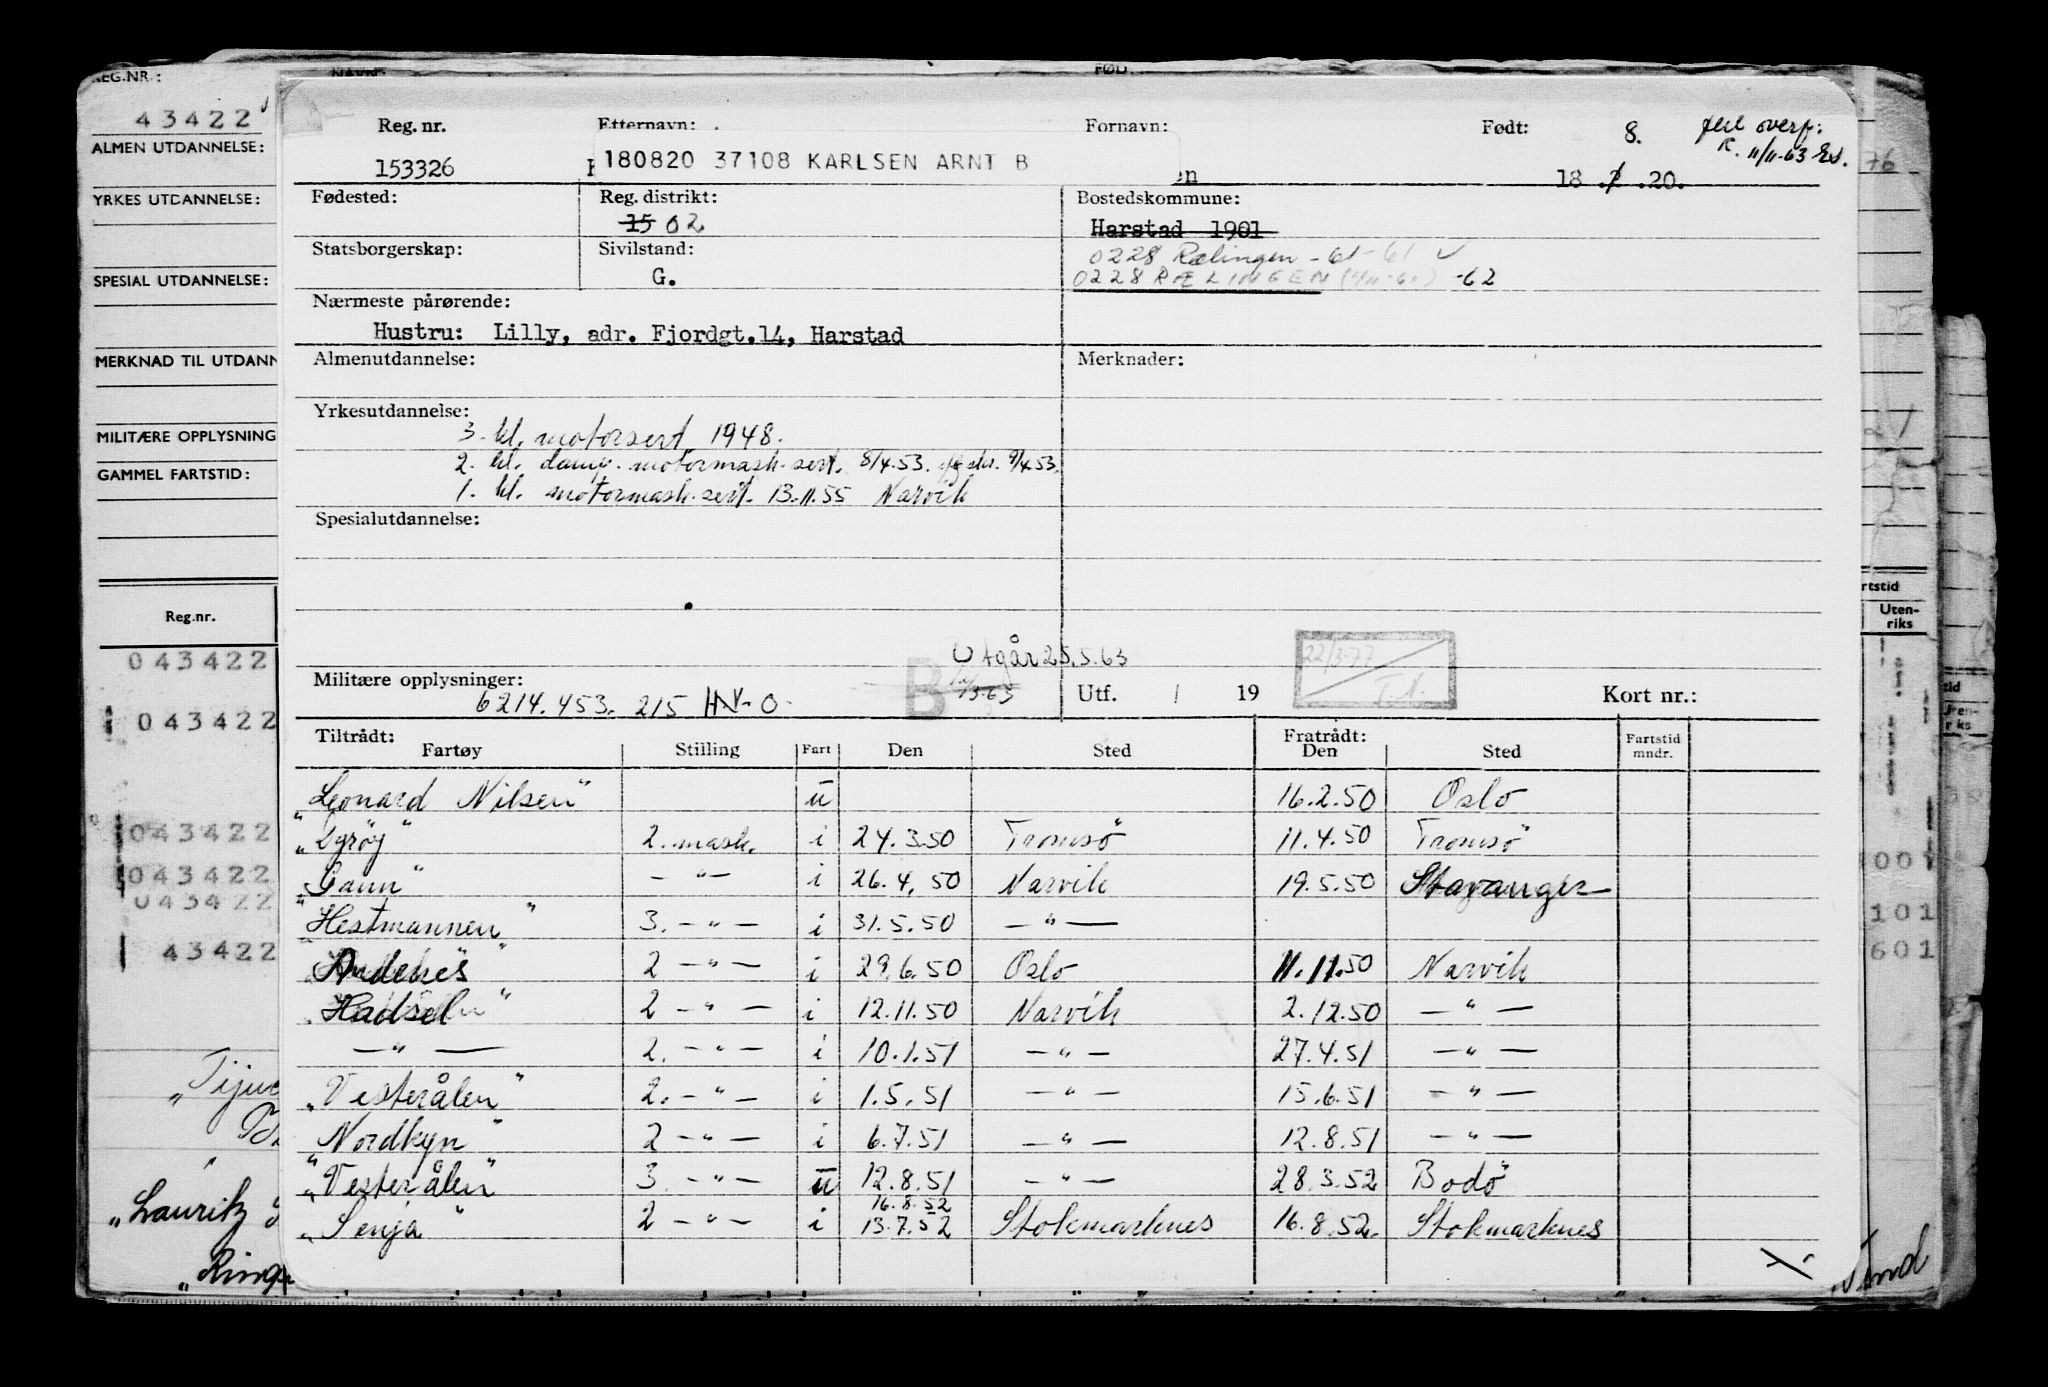 REG.NR.:
43422
ALMEN UTDANNELSE:
YRKES UTDANNELSE:
SPESIAL UTDANNELSE:
MERKNAD TIL UTDANN
MILITÆRE OPPLYSNING
GAMMEL FARTSTID:
Reg.nr.
043422
043422
043422
043422
043422
43422
"Tijuc
"Lauritz
"Ring
NAVN:
FØD
Reg. nr. Etternavn: Fornavn: Født: 8. feil overf:
R. 11/11-63
153326 180820 37108 KARLSEN ARNT B en 18 .20.
Fødested: Reg. distrikt: Bostedskommune:
15 02 Harstad 1901
Statsborgerskap: Sivilstand: 0228 Rælingen - 61 - 61
G. 0228 RÆLINGEN -62
Nærmeste pårørende:
Hustru: Lilly, adr. Fjordgt.14, Harstad
Almenutdannelse: Merknader:
Yrkesutdannelse:
3. kl. motorsert 1948.
2. kl. damp. motormask. sert. 8/4.53. 9/4 53.
1. kl. motormask. sert. 13.11.55 Narvik
Spesialutdannelse:
Utgår 25.5.63
22/3-77
Militære opplysninger: B Utf. / 19 Kort nr.:
6214.453. 215 HV-O.
Tiltrådt: Fratrådt:
Fartøy Stilling Fart Den Sted Den Sted Fartstid mndr.
"Leonard Nilsen" u 16.2.50 Oslo
"Dyrøy" 2. mask. i 24.3.50 Tromsö 11.4.50 Tromsö
"Gann" - " - i 26.4.50 Narvik 19.5.50 Stavanger
"Hestmannen" 3. - " - i 31.5.50 - " -
Andenes" 2 - " - i 29.6.50 Oslo 11.11.50 Narvik
Hadsel" 2 - " - i 12.11.50 Narvik 2.12.50 - " -
- " - 2. - " - i 10.1.51 - " - 27.4.51 - " -
"Vesterålen" 2. - " - i 1.5.51 - " - 15.6.51 - " -
"Nordkyn" 2 - " - i 6.7.51 - " - 12.8.51 - " -
"Vesterålen" 3. - " - u 12.8.51 - " - 28.3.52 Bodö
16.8.52
"Senja" 2 - " - i 13.7.52 Stokmarknes 16.8.52. Stokmarknes
76
rtstid
Uten-
riks
001
101
601